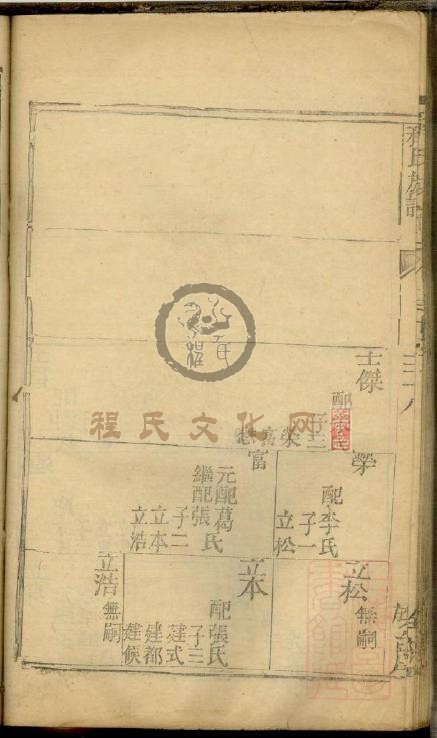 程氏族譜
士傑
子三
榮
配李氏
子一
立松
富
元配葛氏
繼配張氏
子二
立本
立浩
立松 無嗣
立本
配張氏
子三
建式
建都
建候
立浩 無嗣
程氏文化网